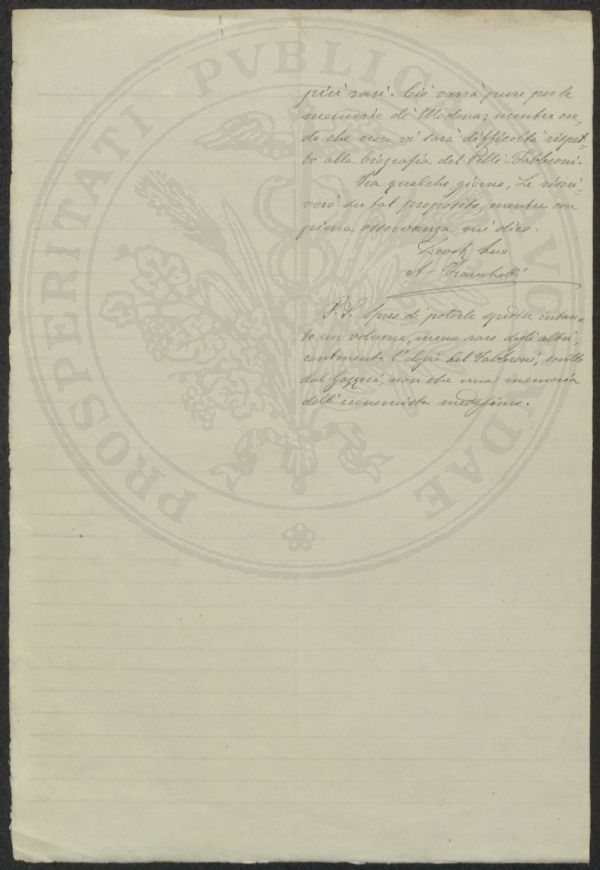 PROSPERITATI PVBLICAE AVGENDAE
più rari. Ciò varrà pure per le
memorie di Modena; mentre cre-
do che non vi sarà difficoltà rispet-
to alla biografia del Pelli-Fabbroni.
Fra qualche giorno, Le riscri-
verò su tal proposito, mentre con
piena osservanza mi dico.
Devot. Suo
A.
P.S. Spero di poterle spedire intan-
to un volume, meno raro degli altri,
contenente l'elogio del Fabbroni, scritto
dal Gazzeri, non che una memoria
dell'economista medesimo.